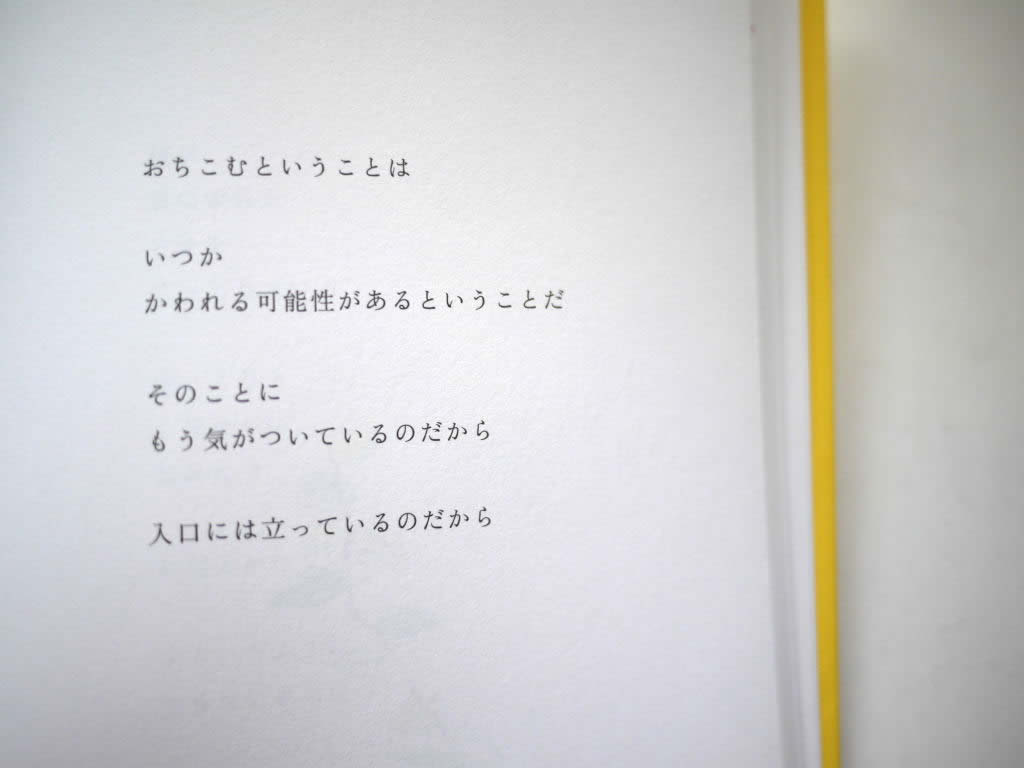 おちこむということは
いつか
かわれる可能性があるということだ
そのことに
もう気がついているのだから
入口には立っているのだから